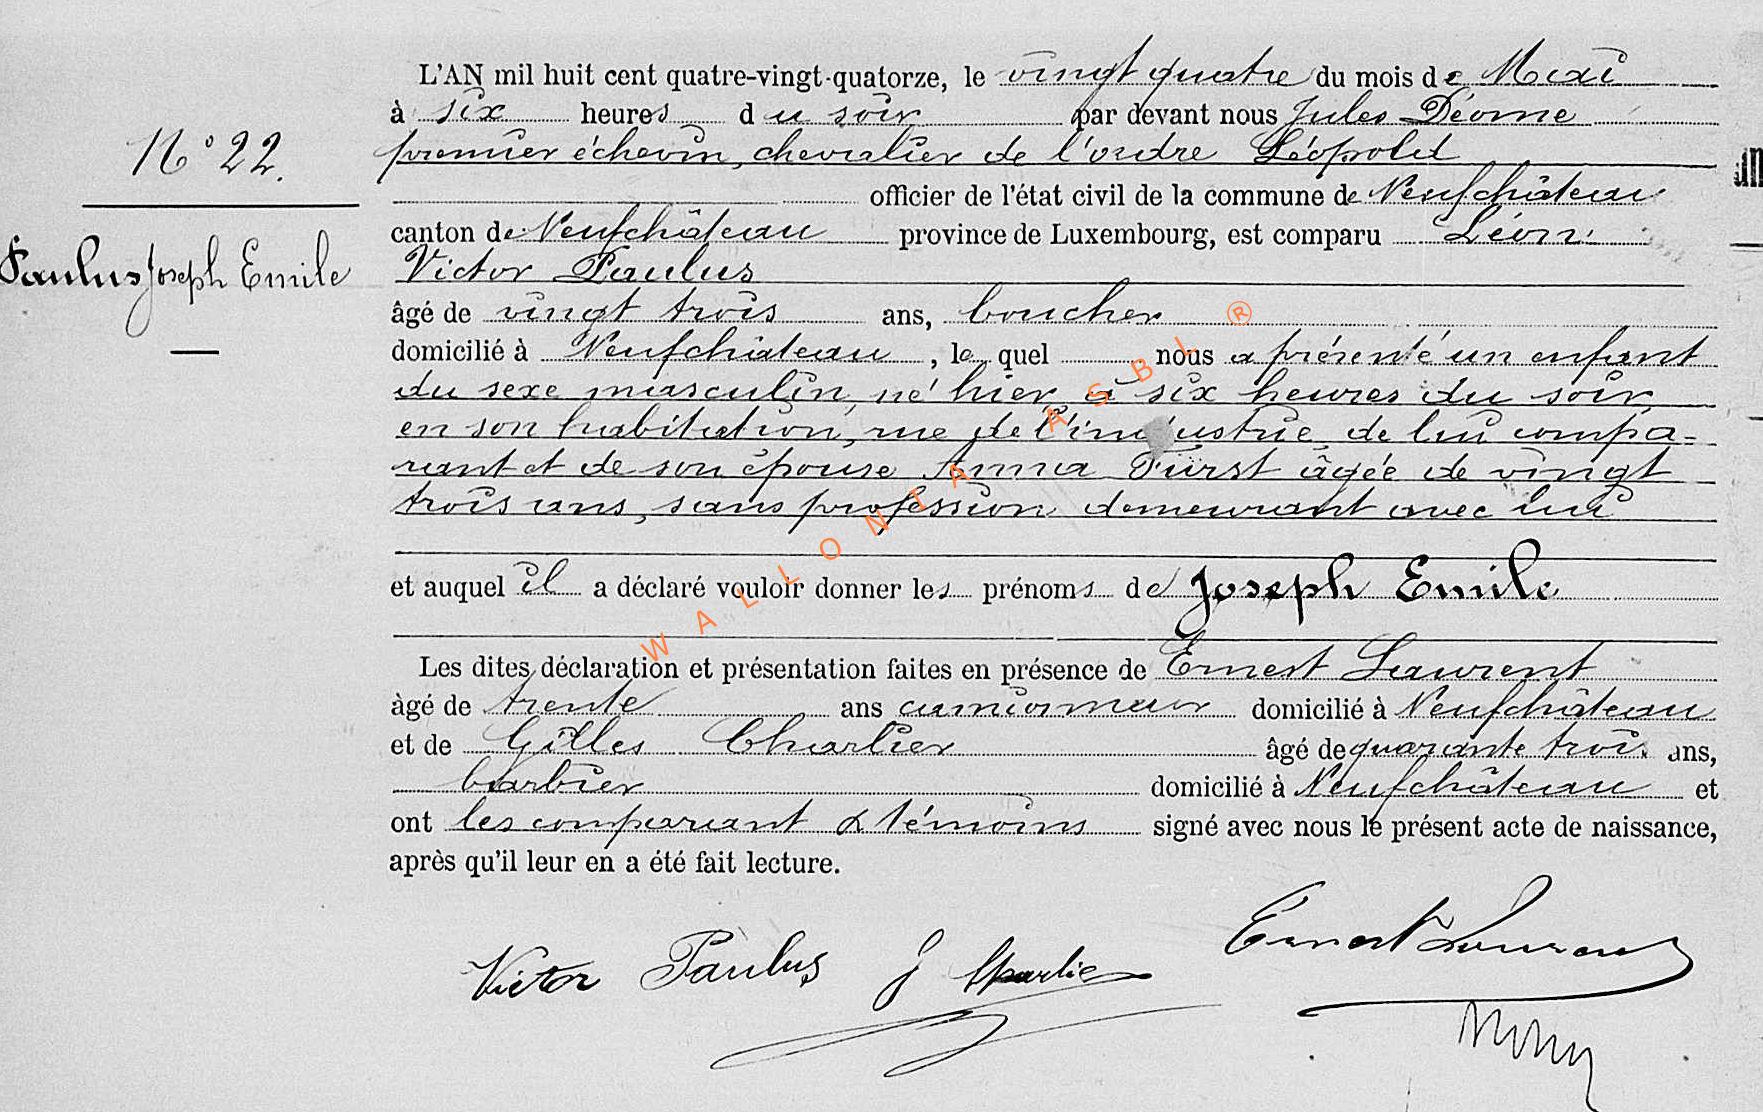 N° 22.
Paulus Joseph Emile
L'AN mil huit cent quatre-vingt-quatorze, le vingt quatre du mois de Mai
à six heures du soir par devant nous Jules Déome
premier échevin, chevalier de l'ordre Léopold
officier de l'état civil de la commune de Neufchâteau
canton de Neufchâteau province de Luxembourg, est comparu Léon
Victor Paulus
âgé de vingt trois ans, boucher
domicilié à Neufchâteau, lequel nous a présenté un enfant
du sexe masculin, né hier à six heures du soir
en son habitation, rue de l'industrie, de lui compa=
rant et de son épouse Anna Fürst âgée de vingt
trois ans, sans profession demeurant avec lui
et auquel il a déclaré vouloir donner les prénoms de Joseph Emile
Les dites déclaration et présentation faites en présence de Ernest Laurent
âgé de trente ans camionneur domicilié à Neufchâteau
et de Gilles Charlier âgé de quarante trois ans,
barbier domicilié à Neufchâteau et
ont les comparant & témoins signé avec nous le présent acte de naissance,
après qu'il leur en a été fait lecture.
Victor Paulus G Charlier Ernest Laurent
WALLONIA ASBL ®